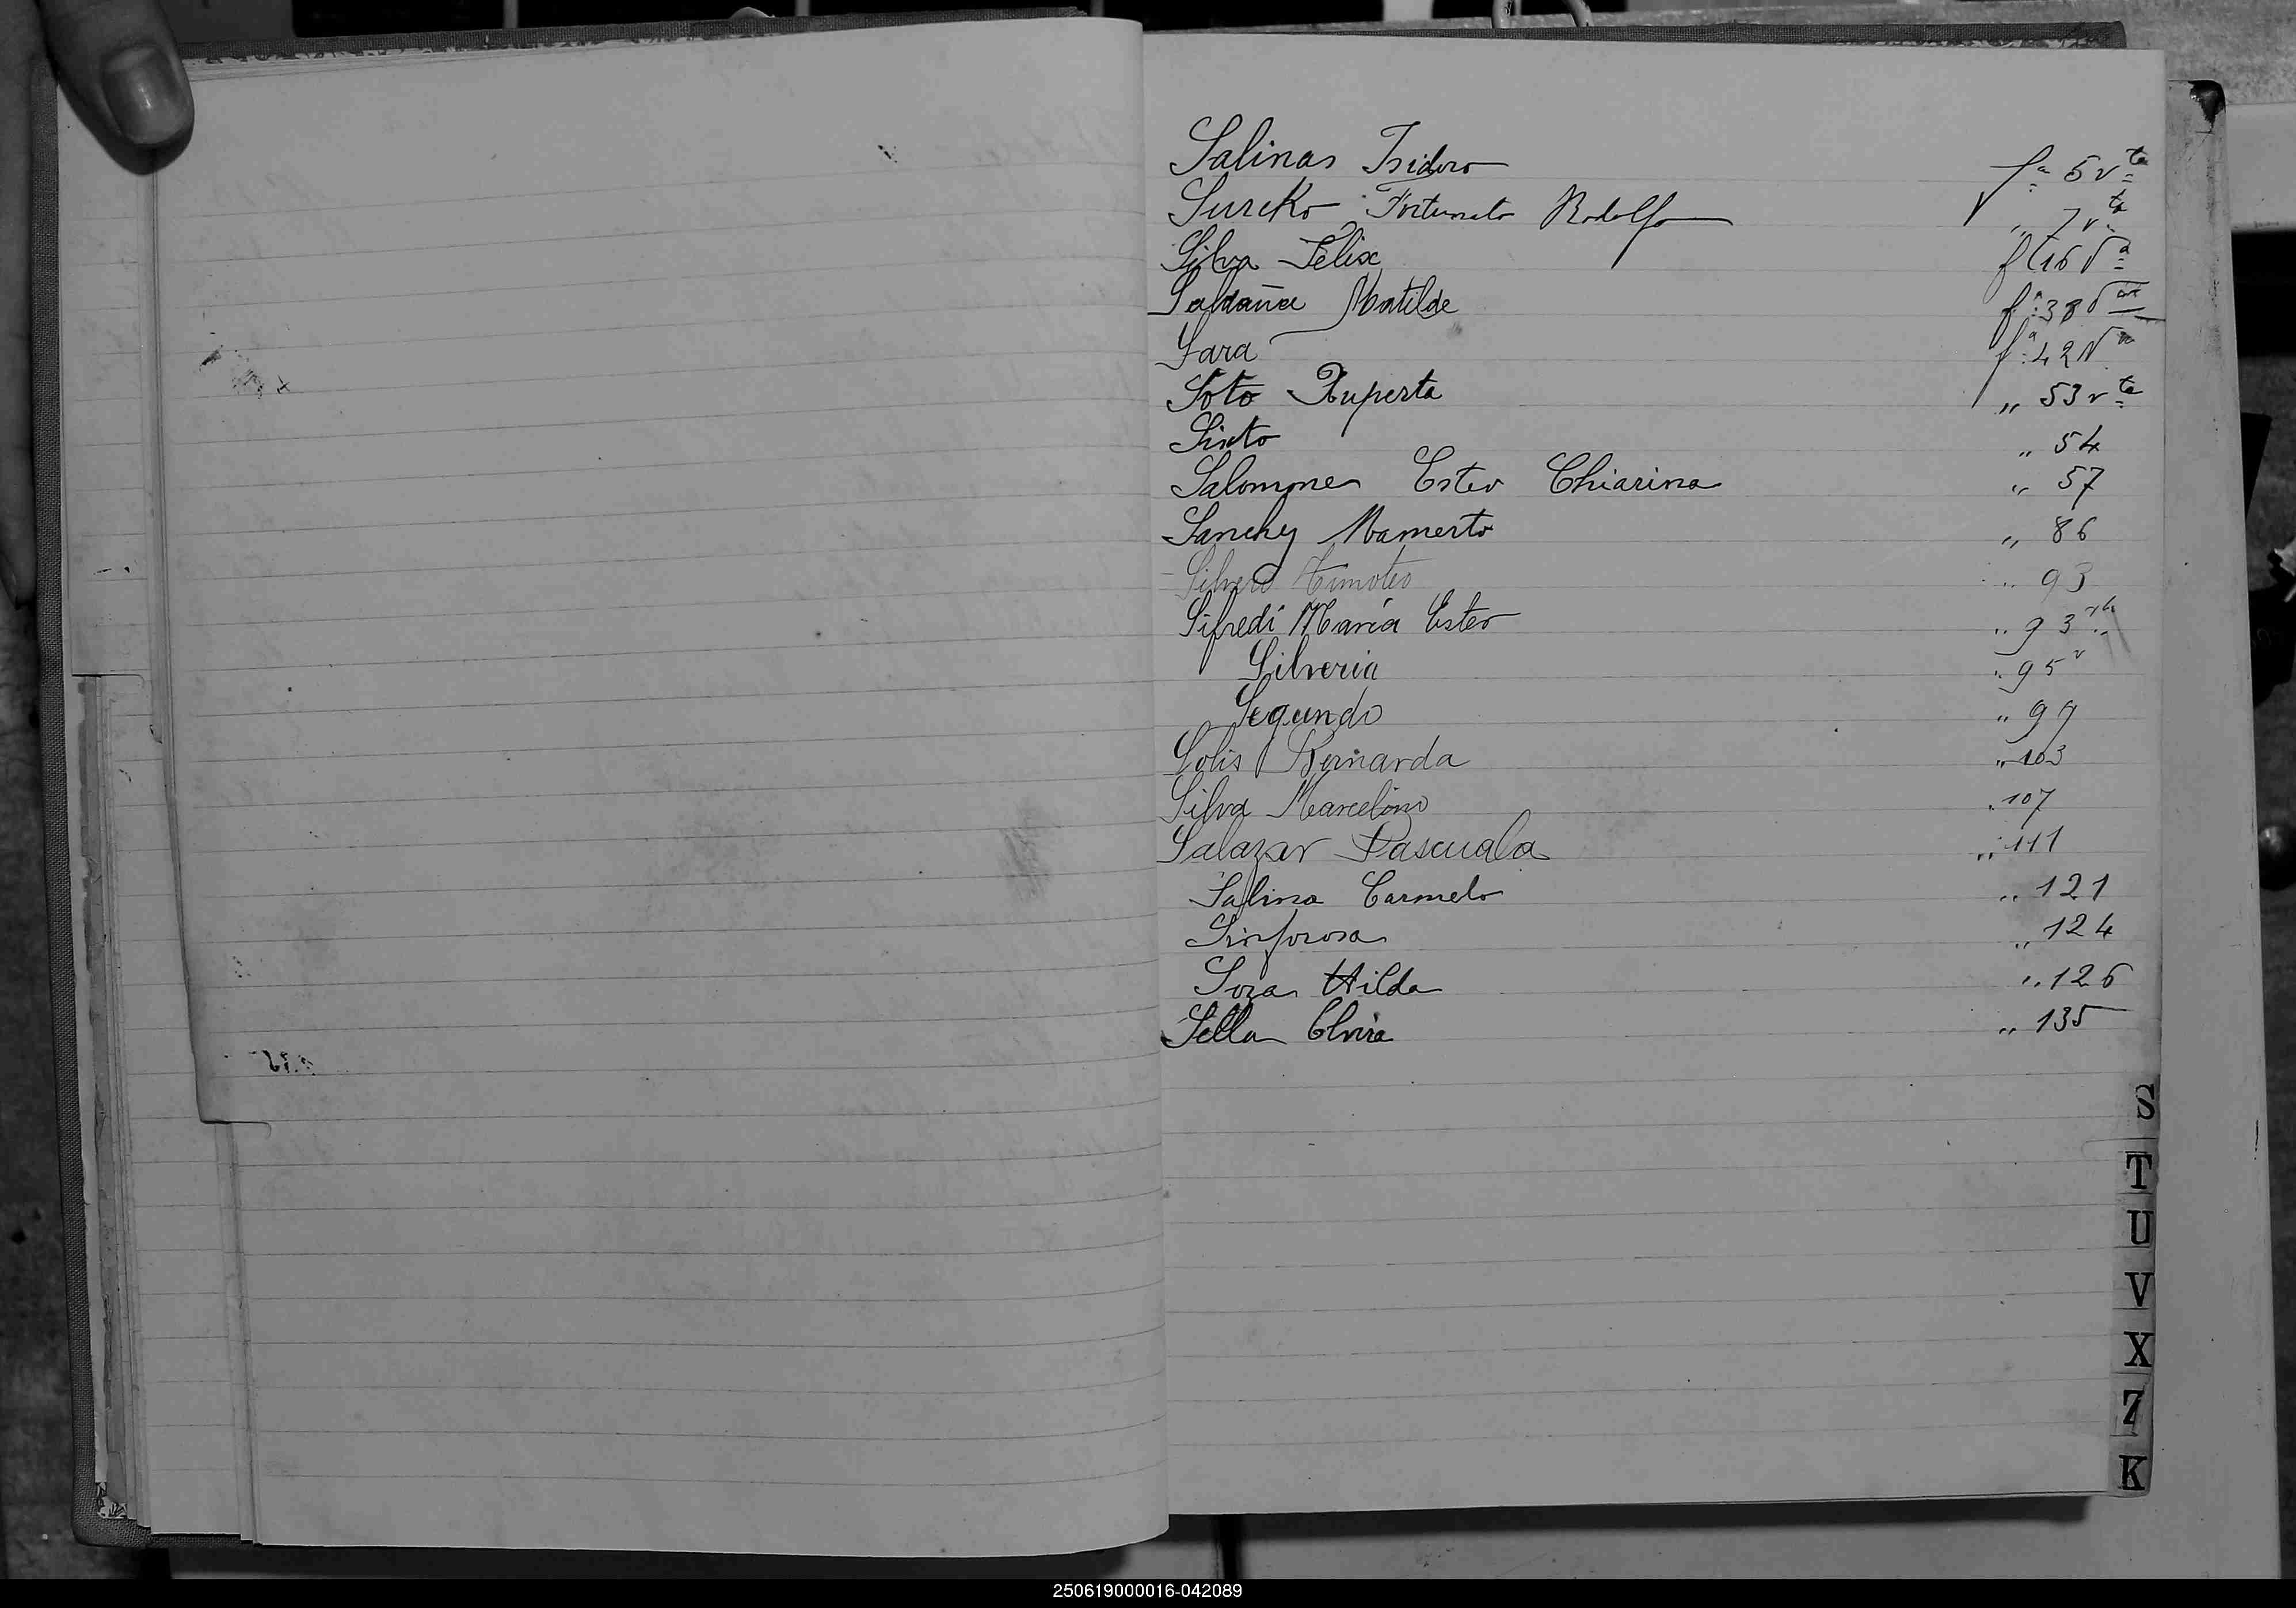 Salinas Isidoro fª 5 vta
Sureko Fortunato Rodolfo „ 7 vta
Silva Felix fª 16 Vª
Saldaña Matilde fª 38 V
Sara fª 42 V
Soto Ruperta „ 53 vta
Sixto „ 54
Salomone Ester Chiarina „ 57
Sanchez Mamerto „ 86
Silvero Timoteo „ 93
Sifredi María Ester „ 93 vta
Silveria „ 95 v
Segundo „ 99
Solis Bernarda „ 103
Silva Marcelino „ 107
Salazar Pascuala „ 111
Salina Carmelo „ 121
Sinforosa „ 124
Soza Hilda „ 126
Sella Elvira „ 135
S
T
U
V
X
Z
K
250619000016-042089